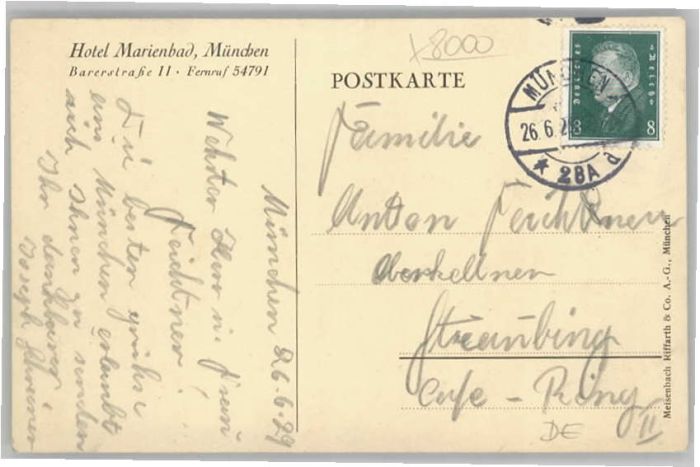 Hotel Marienbad, München
Barerstraße 11 · Fernruf 54791
x8000
POSTKARTE
Deutsches Reich
8 8
MÜNCHEN
26.6.2
* 28A d
München 26.6.29
Wehrter Herr u. Frau
Feichtner!
Die besten Grüße
aus München erlaubt
sich Ihnen zu senden
Ihr dankbarer
Joseph
Familie
Anton Feichtner
Oberkellner
Straubing
Cafe - Ring
II
DE
Meisenbach Riffarth & Co. A.-G., München